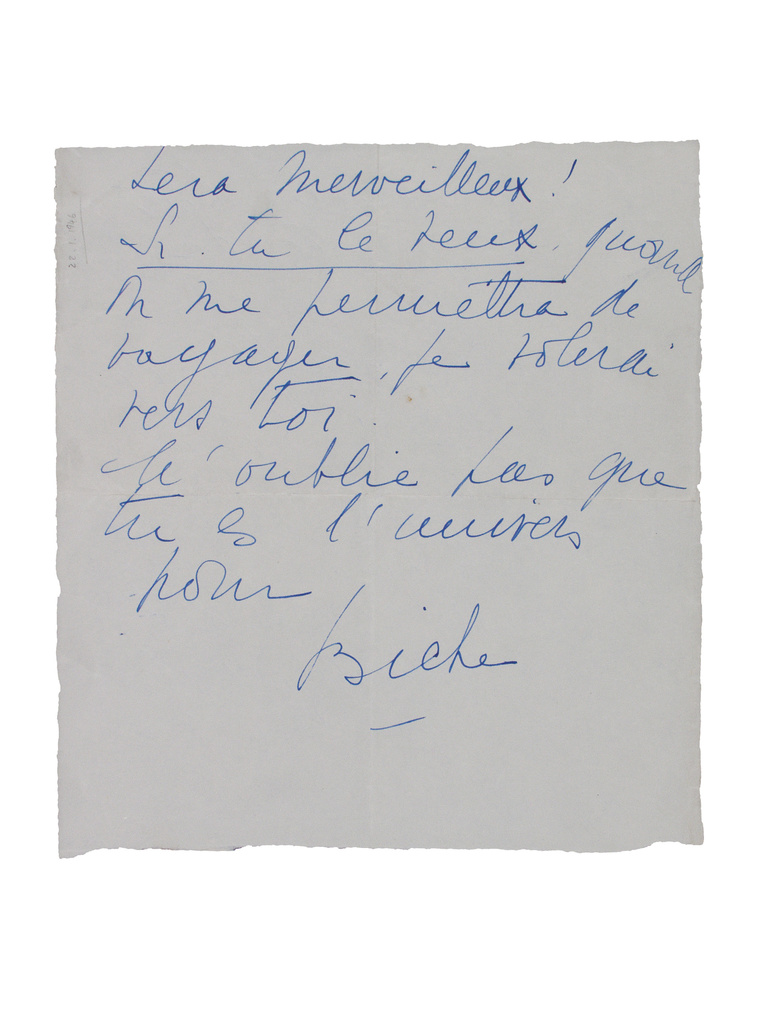 sera merveilleux !
Si tu le veux, quand
on me permettra de
voyager, je volerai
vers toi.
N'oublie pas que
tu es l'univers
pour
Biche